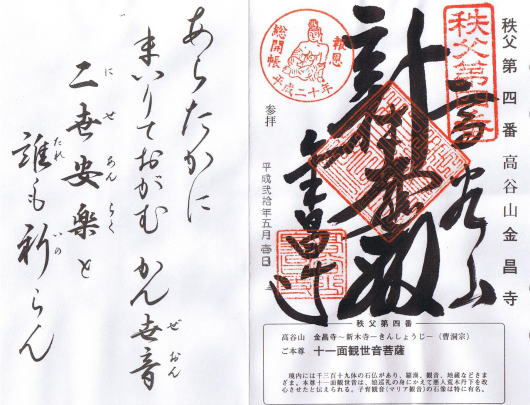 秩父第四番 高谷山金昌寺
秩父第四番
高谷山
金昌寺
報恩
総開帳
平成二十年
参拝
平成弐拾年五月壱日
秩父第四番
高谷山 金昌寺〜新木寺〜きんしょうじ〜(曹洞宗)
ご本尊 十一面観世音菩薩
境内には千三百十九体の石仏があり、羅漢、観音、地蔵などさま
ざま。本尊十一面観世音は、娘巡礼の身にかえて悪人荒木丹下を改
心させたと伝えられる。子育観音(マリア観音)の石像は特に有名。
あらたかに
まいりておがむ かん世音
ぜおん
二世安楽と
にせあんらく
誰も祈らん
たれ いの